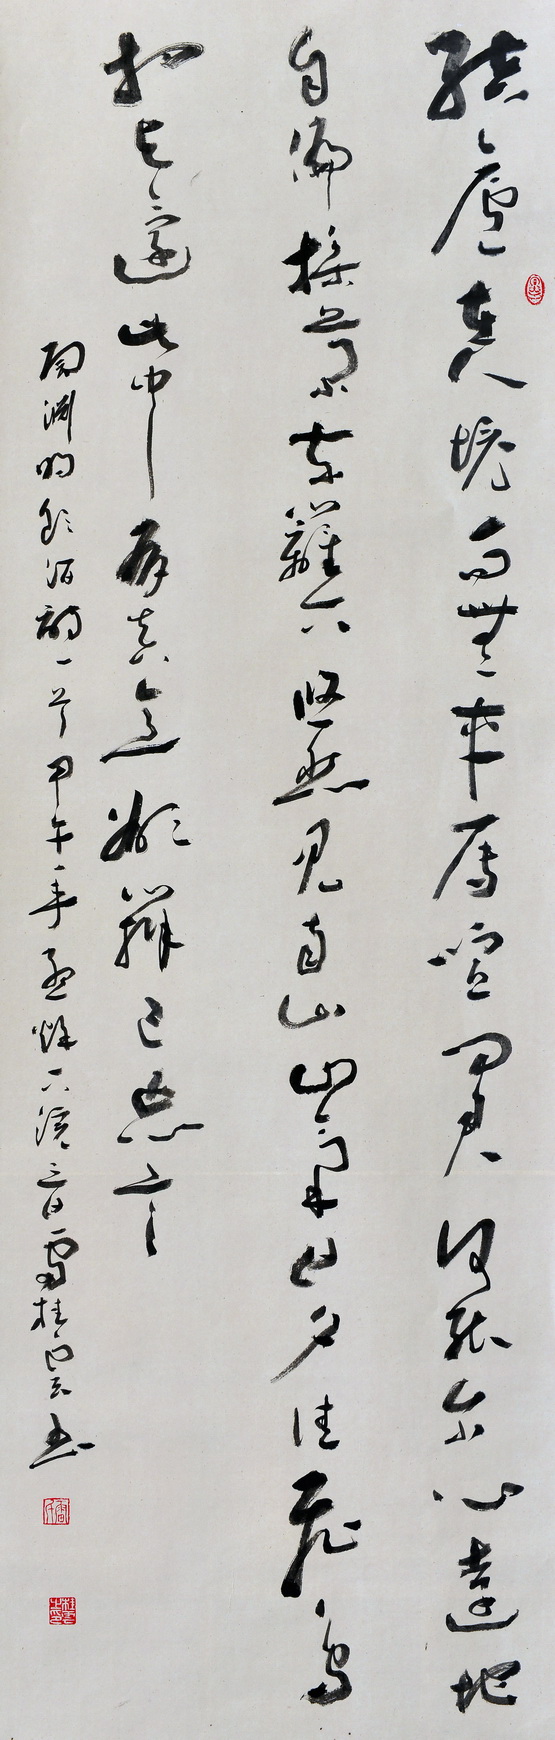 結廬在人境而無車馬喧問君何能尔心遠地
自偏採菊東籬下悠然見南山山氣日夕佳飛鳥
相与還此中有真意欲辨已忘言
陶淵明飲酒詩一首甲午年孟秋下澣三日桂雲书